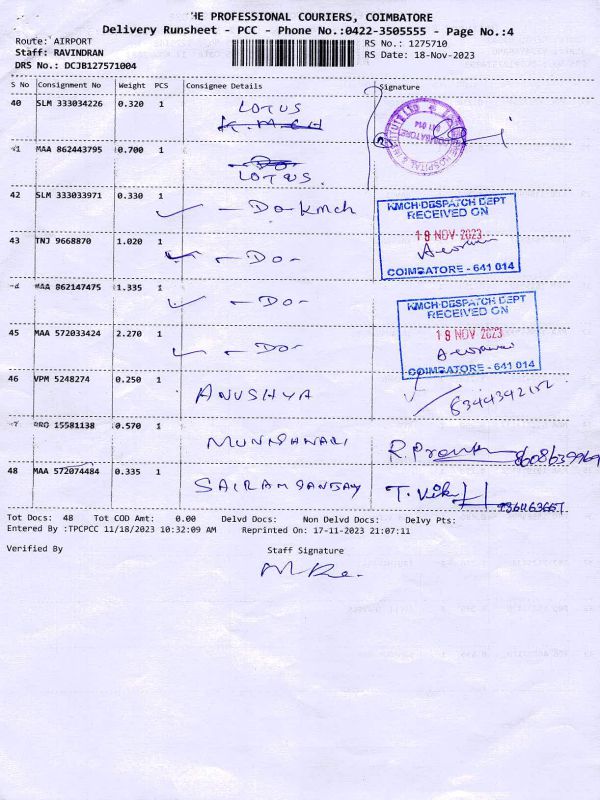 HE PROFESSIONAL COURIERS, COIMBATORE
Delivery Runsheet - PCC - Phone No.:0422-3505555 - Page No.:4
Route: AIRPORT
RS No.: 1275710
Staff: RAVINDRAN
RS Date: 18-Nov-2023
DRS No.: DCJB127571004
S No Consignment No Weight PCS Consignee Details Signature
40 SLM 333034226 0.320 1 LOTUS
K.MCH
41 MAA 862443795 0.700 1 -Do-
LOTUS.
42 SLM 333033971 0.330 1 - Do-kmch
KMCH-DESPATCH DEPT
RECEIVED ON
18 NOV 2023
COIMBATORE - 641 014
43 TNJ 9668870 1.020 1 - Do -
MAA 862147475 1.335 1 - Do -
KMCH-DESPATCH DEPT
RECEIVED ON
18 NOV 2023
COIMBATORE - 641 014
45 MAA 572033424 2.270 1 - Do -
46 VPM 5248274 0.250 1 ANUSHYA
15581138 0.570 1 MUNISHWARI R.
8608639969
48 MAA 572074484 0.335 1 SAIRAM SANJAY T.
Tot Docs: 48 Tot COD Amt: 0.00 Delvd Docs: Non Delvd Docs: Delvy Pts:
Entered By :TPCPCC 11/18/2023 10:32:09 AM Reprinted On: 17-11-2023 21:07:11
Verified By Staff Signature